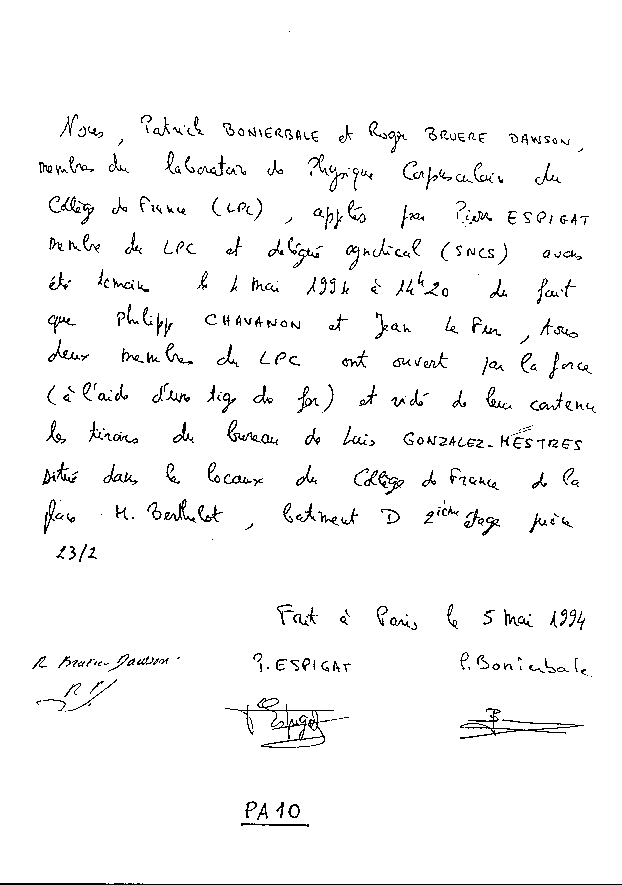 Nous, Patrick BONIERBALE et Roger BRUERE DAWSON,
membres du laboratoire de Physique Corpusculaire du
Collège de France (LPC), appelés par Pierre ESPIGAT
membre du LPC et délégué syndical (SNCS) avons
été témoins le 4 mai 1994 à 14h20 du fait
que Philippe CHAVANON et Jean Le Fur, tous
deux membres du LPC ont ouvert par la force
(à l'aide d'une tige de fer) et vidé de leur contenu
les tiroirs du bureau de Luis GONZALEZ-MESTRES
situé dans les locaux du Collège de France de la
place M. Berthelot, batiment D 2ième étage pièce
23/2
Fait à Paris le 5 mai 1994
R Bruere Dawson P. ESPIGAT P. Bonierbale
PA 10